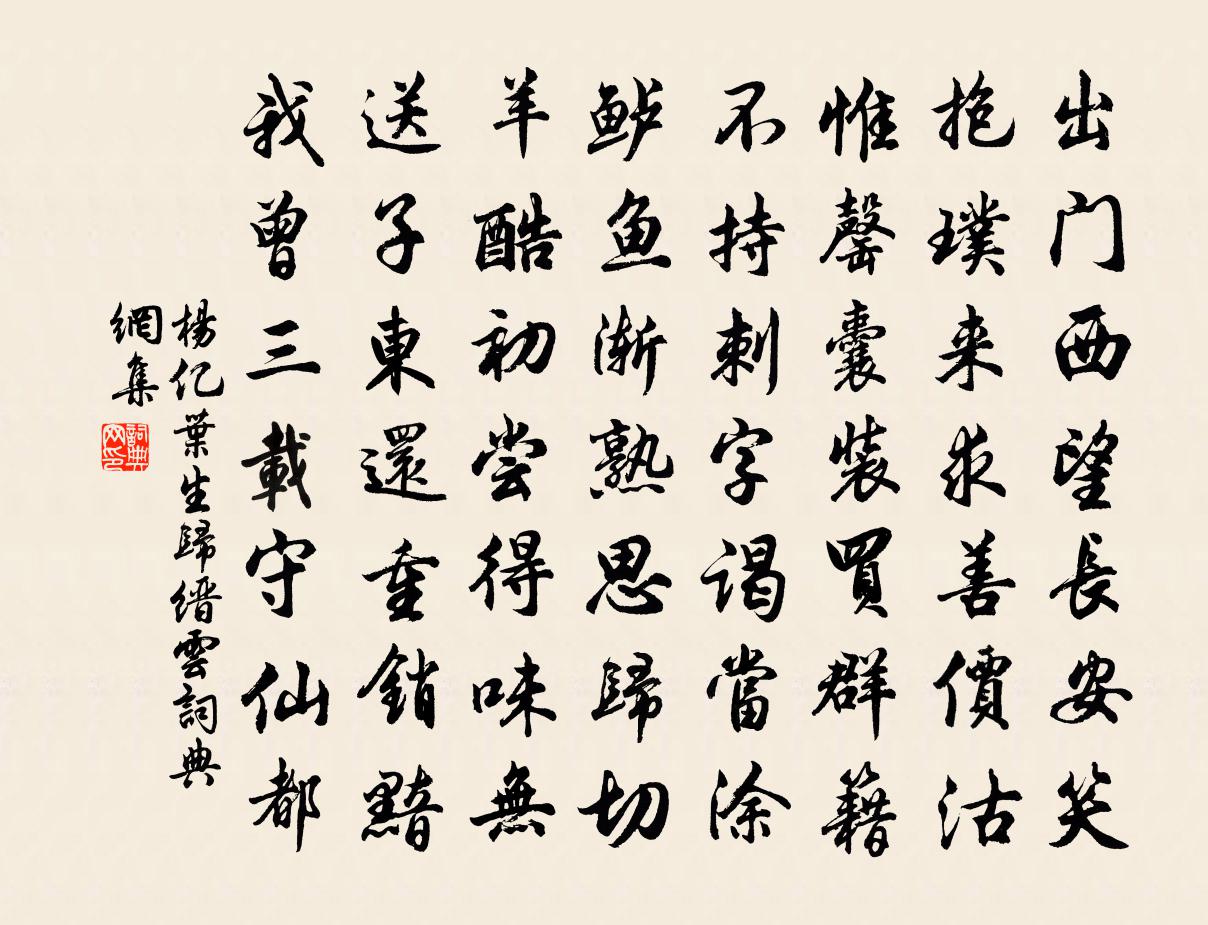 出门西望長安笑
抱璞来求善價沽
惟罄囊裝買群籍
不持刺字谒當涂
鲈鱼渐熟思歸切
羊酪初尝得味無
送子東還重銷黯
我曾三載守仙都
楊亿葉生歸缙雲詞典
網集
詞典网印